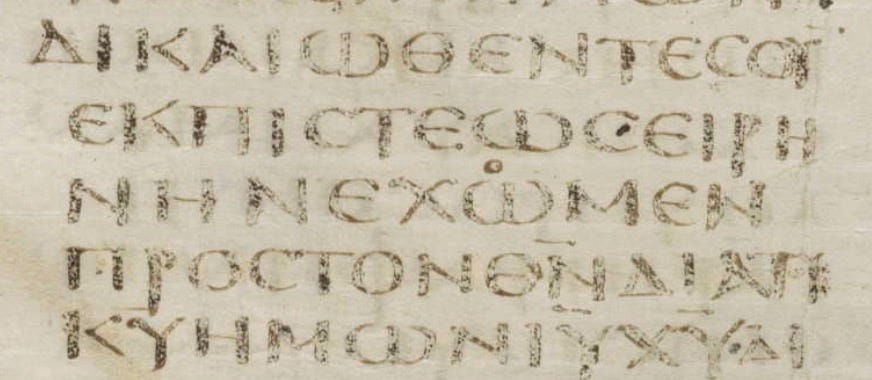 ΔΙΚΑΙΩΘΕΝΤΕϹΟΥ
ΕΚΠΙϹΤΕΩϹΕΙΡΗ
ο
ΝΗΝΕΧΩΜΕΝ
ΠΡΟϹΤΟΝΘ̅Ν̅ΔΙΑΤΟΥ
ΚΥΗΜΩΝΙ̅Υ̅Χ̅Υ̅·ΔΙ